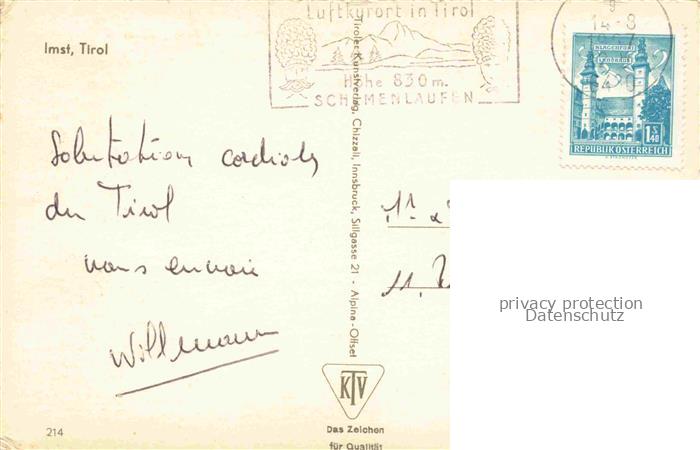 Luftkurort in Tirol
Höhe 830 m.
SCHEMENLAUFEN
14-8
KLAGENFURT
LANDHAUS
1.40
S
REPUBLIK ÖSTERREICH
Imst, Tirol
Salutations cordiales
du Tirol
vous envoie
Willemann
Tiroler Kunstverlag, Chizzali, Innsbruck, Sillgasse 21 - Alpina-Offset
11.
privacy protection
Datenschutz
KTV
214
Das Zeichen
für Qualität